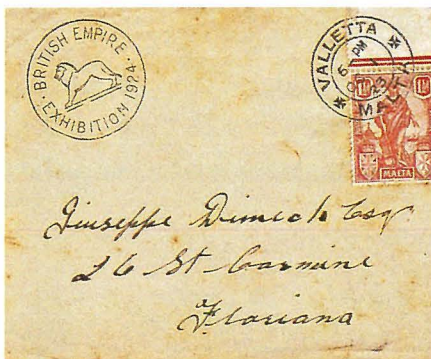 BRITISH EMPIRE
EXHIBITION 1924
VALLETTA
6 PM
23
MALTA
1½ 1½
MALTA
Giuseppe Dimech Esq
26 St Carmine
Floriana